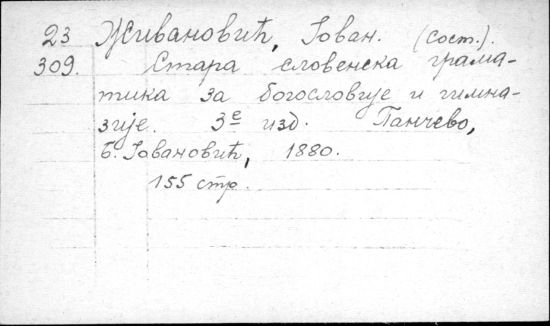 23 Живановић, Јован. (сост.).
309. Стара словенска грама-
тика за богословије и гимна-
зије. 3е изд. Панчево,
Б. Јовановић, 1880.
155 стр.